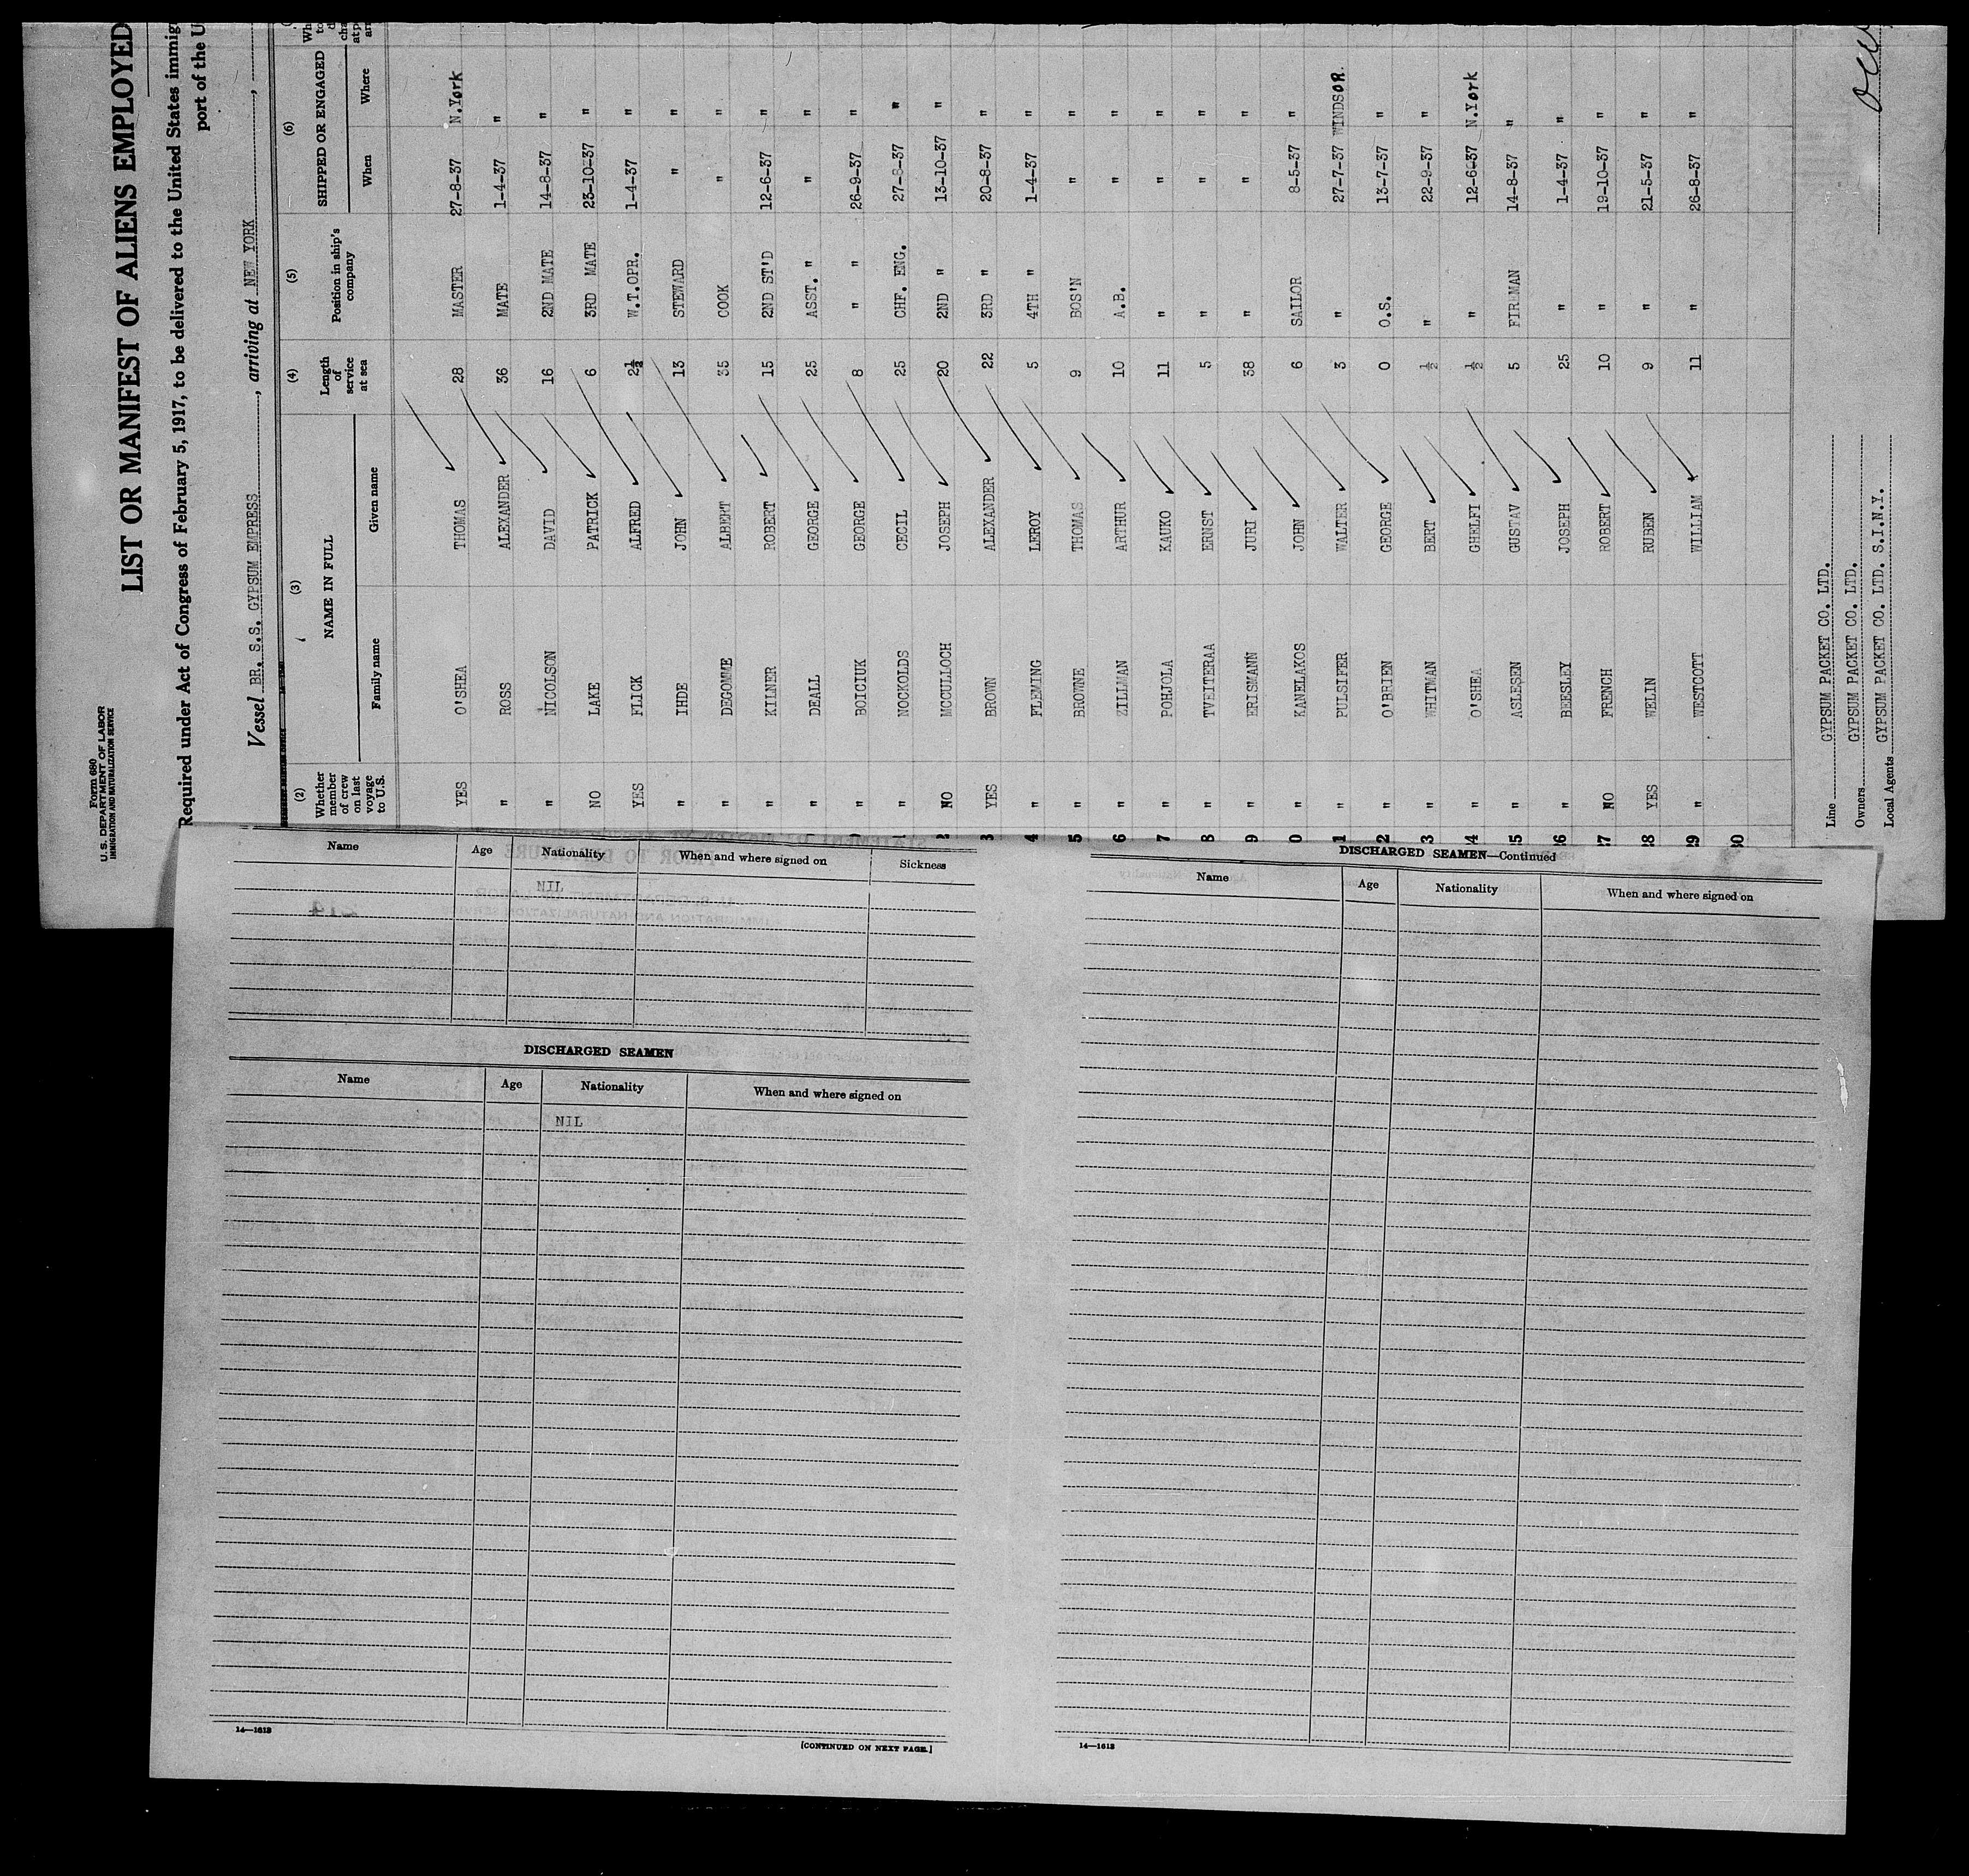 Form 680
U. S. DEPARTMENT OF LABOR
IMMIGRATION AND NATURALIZATION SERVICE
LIST OR MANIFEST OF ALIENS EMPLOYED
Required under Act of Congress of February 5, 1917, to be delivered to the United States immig
port of the U
Vessel BR. S.S. GYPSUM EMPRESS, arriving at NEW YORK,
(2) (3) (4) (5) (6)
Whether member of crew on last voyage to U.S. NAME IN FULL Length of service at sea Position in ship's company SHIPPED OR ENGAGED
Family name Given name When Where
YES O'SHEA THOMAS 28 MASTER 27-8-37 N.York
" ROSS ALEXANDER 36 MATE 1-4-37 "
" NICOLSON DAVID 16 2ND MATE 14-8-37 "
NO LAKE PATRICK 6 3RD MATE 23-10-37 "
YES FLICK ALFRED 2½ W.T.OPR. 1-4-37 "
" IHDE JOHN 13 STEWARD " "
" DEGOMME ALBERT 35 COOK " "
" KILNER ROBERT 15 2ND ST'D 12-6-37 "
" DEALL GEORGE 25 ASST. " " "
" BOICIUK GEORGE 8 " " 26-9-37 "
1 " NOCKOLDS CECIL 25 CHF. ENG. 27-8-37 "
2 NO MCCULLOCH JOSEPH 20 2ND " 13-10-37 "
3 YES BROWN ALEXANDER 22 3RD " 20-8-37 "
4 " FLEMING LEROY 5 4TH " 1-4-37 "
5 " BROWNE THOMAS 9 BOS'N " "
6 " ZILLMAN ARTHUR 10 A.B. " "
7 " POHJOLA KAUKO 11 " " "
8 " TVEITERAA ERNST 5 " " "
9 " ERISMANN JURI 38 " " "
0 " KANELAKOS JOHN 6 SAILOR 8-5-37 "
1 " PULSIFER WALTER 3 " 27-7-37 WINDSOR.
2 " O'BRIEN GEORGE 0 O.S. 13-7-37 "
3 " WHITMAN BERT ½ " 22-9-37 "
4 " O'SHEA GHELFI ½ " 12-6-37 N.York
5 " ASLESEN GUSTAV 5 FIREMAN 14-8-37 "
26 " BEESLEY JOSEPH 25 " 1-4-37 "
27 NO FRENCH ROBERT 10 " 19-10-37 "
28 YES WELIN RUBEN 9 " 21-5-37 "
29 " WESTCOTT WILLIAM 11 " 26-8-37 "
30
Line GYPSUM PACKET CO. LTD.
Owners GYPSUM PACKET CO. LTD.
Local Agents GYPSUM PACKET CO. LTD. S.I.N.Y.
Name Age Nationality When and where signed on Sickness
NIL
DISCHARGED SEAMEN
Name Age Nationality When and where signed on
NIL
14—1613
[CONTINUED ON NEXT PAGE.]
DISCHARGED SEAMEN—Continued
Name Age Nationality When and where signed on
14—1613